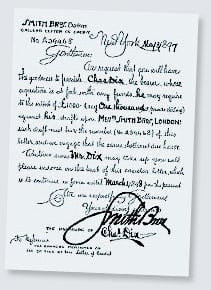 SMITH BROS. & Co.
CIRCULAR LETTER OF CREDIT.
No. A39468 New York May 1, 1897
Gentlemen:
We request that you will have
the goodness to furnish Chas Dix, the bearer, whose
signature is at foot with any funds he may require
to the extent of £1,000 (say One Thousand pounds sterling)
against his drafts upon Messrs. Smith Bros., London;
each draft must bear the number (No. A39468) of this
letter, and we engage that the same shall meet due honor.
Whatever sums Mr. Dix may take up you will
please endorse on the back of this circular letter, which
is to continue in force until March, 1898 from the present
We are respectfully
Yours
Smith Bros
THE SIGNATURE OF Chas. Dix